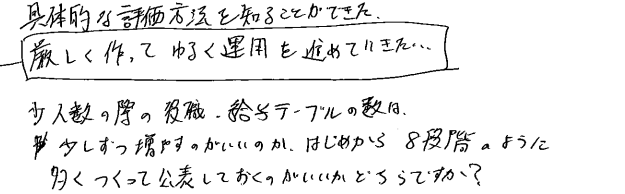 具体的な評価方法を知ることができた。
厳しく作ってゆるく運用を進めていきたい…
少人数の際の役職・給与テーブルの数は、
少しずつ増やすのがいいのか、はじめから8段階のように
多くつくって公表しておくのがいいかどちらですか?